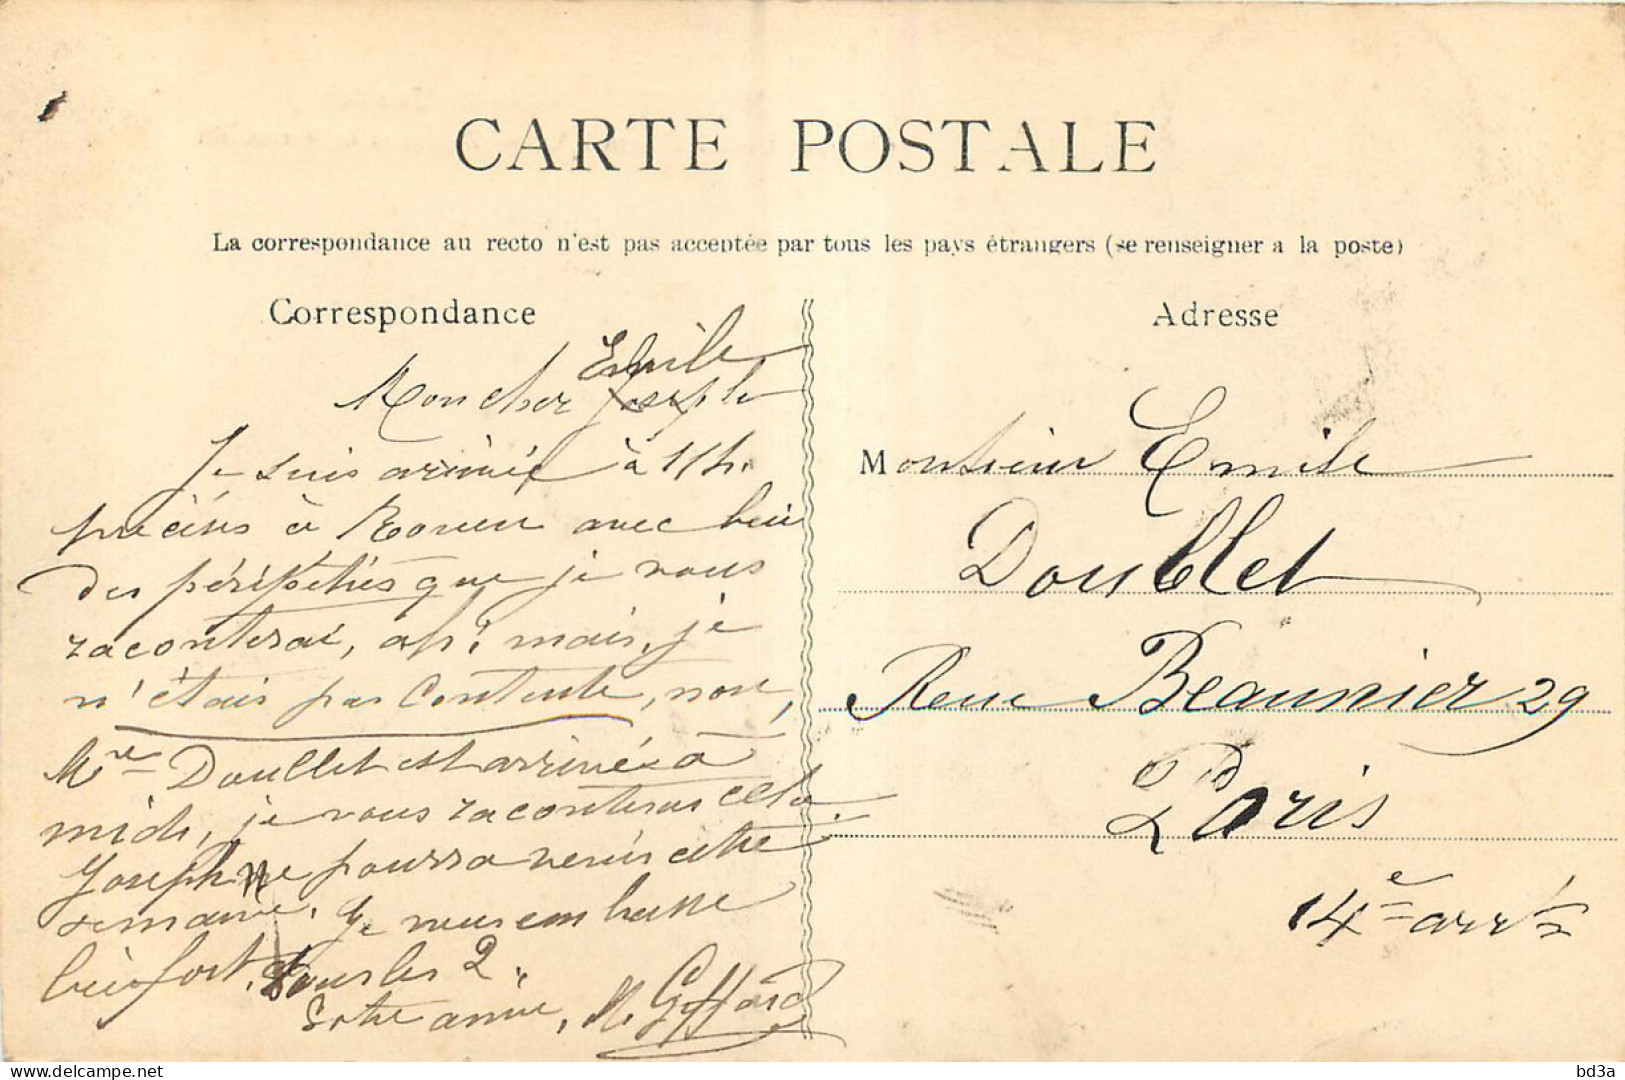 CARTE POSTALE
La correspondance au recto n'est pas acceptée par tous les pays étrangers (se renseigner a la poste)
Correspondance
Emile
Mon cher Joseph
Je suis arrivée à 11h.
précises à Rouen avec bien
des péripéties que je vous
raconterai, ah! mais, je
n'étais pas Contente, non,
Mre Doullet est arrivé à
midi, je vous raconterai cela.
Joseph ne pourra venir cette
semaine. Je vous embrasse
bien fort, tous les 2.
Votre amie, M. Giffard
Adresse
Monsieur Emile
Doublet
Rue Beaunier 29
Paris
14e arrt
delcampe.net
bd3a